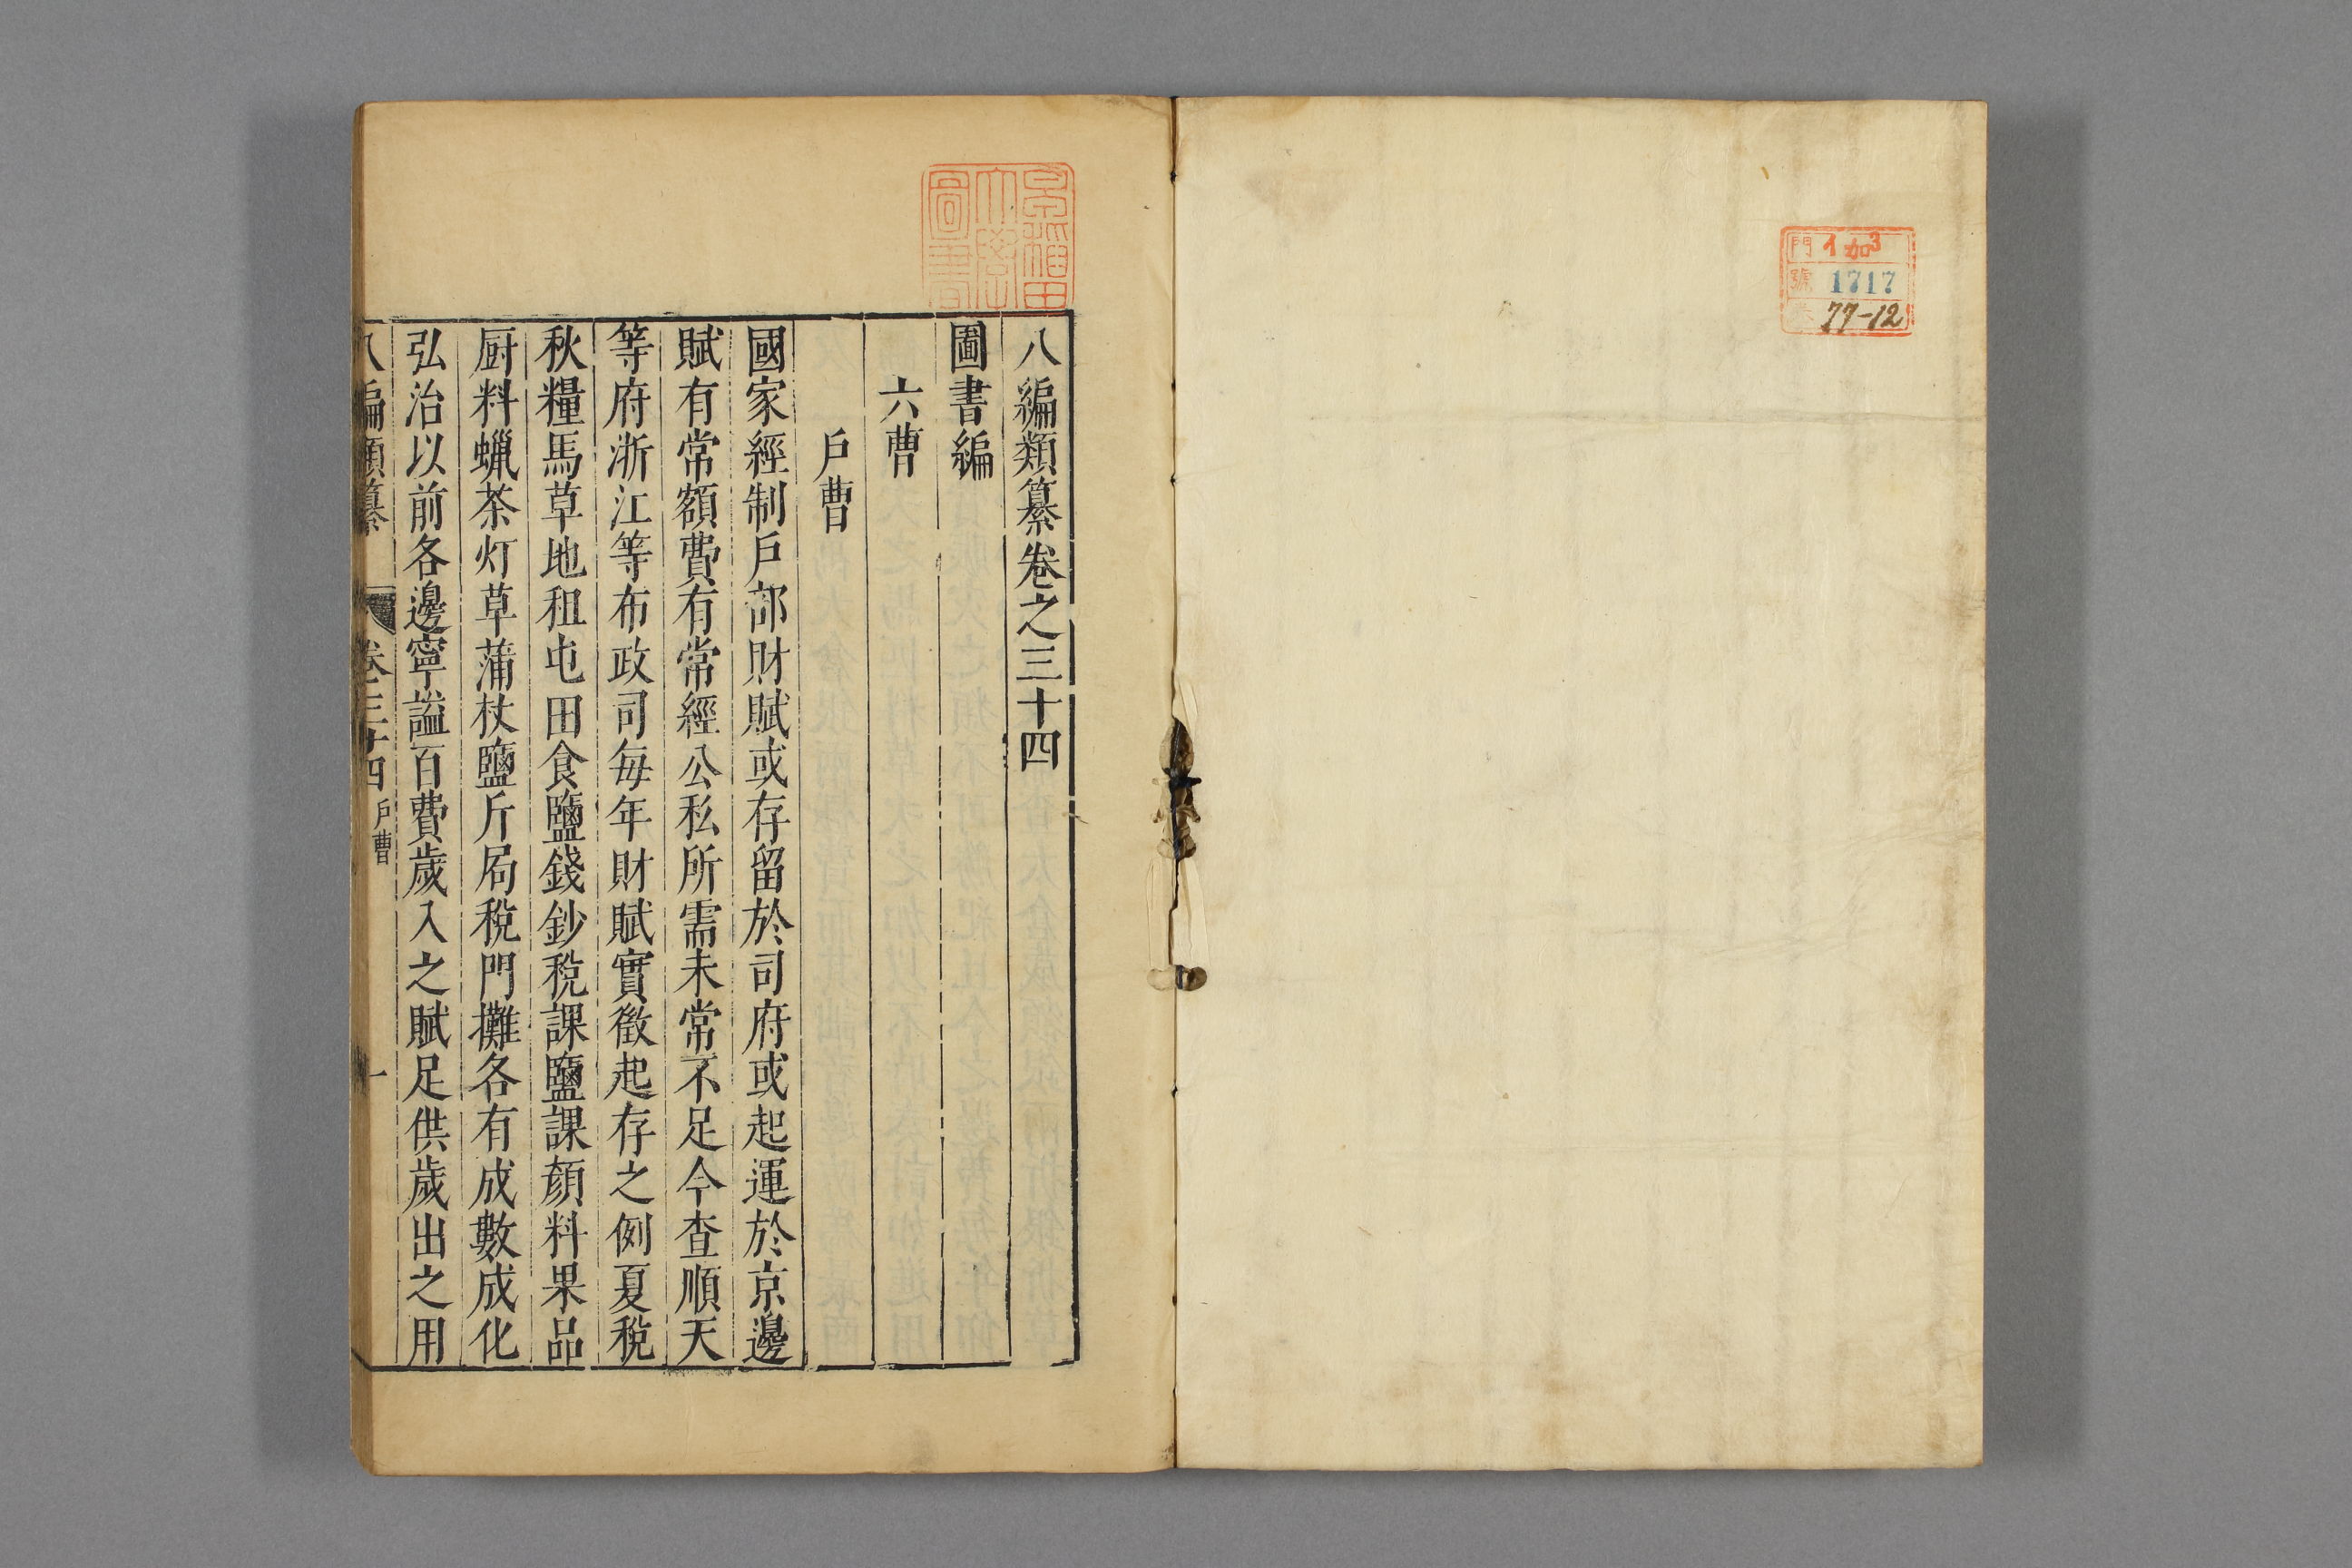 門 イ加3
號 1717
77-12
早稲田
大學
圖書
八編類纂卷之三十四
圖書編
六曹
戶曹
國家經制戶部財賦或存留於司府或起運於京邊
賦有常額費有常經公私所需未常不足今查順天
等府浙江等布政司每年財賦實徵起存之例夏稅
秋糧馬草地租屯田食鹽錢鈔稅課鹽課顏料果品
厨料蠟茶灯草蒲杖鹽斤局稅門攤各有成數成化
弘治以前各邊寧謐百費歲入之賦足供歲出之用
八編類纂 卷三十四 戶曹 一